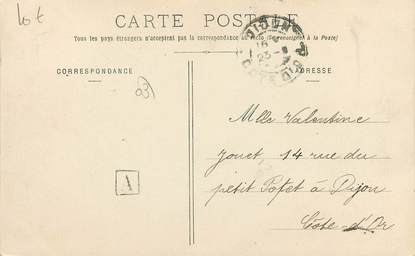 Lot
CARTE POSTALE
Tous les pays étrangers n'acceptent pas la correspondance au recto (Se renseigner à la Poste)
CORRESPONDANCE
ADRESSE
DIJON
COTE D'OR
A
Mlle Valentine
Jouet, 14 rue du
petit Potet à Dijon
Côte-d'Or